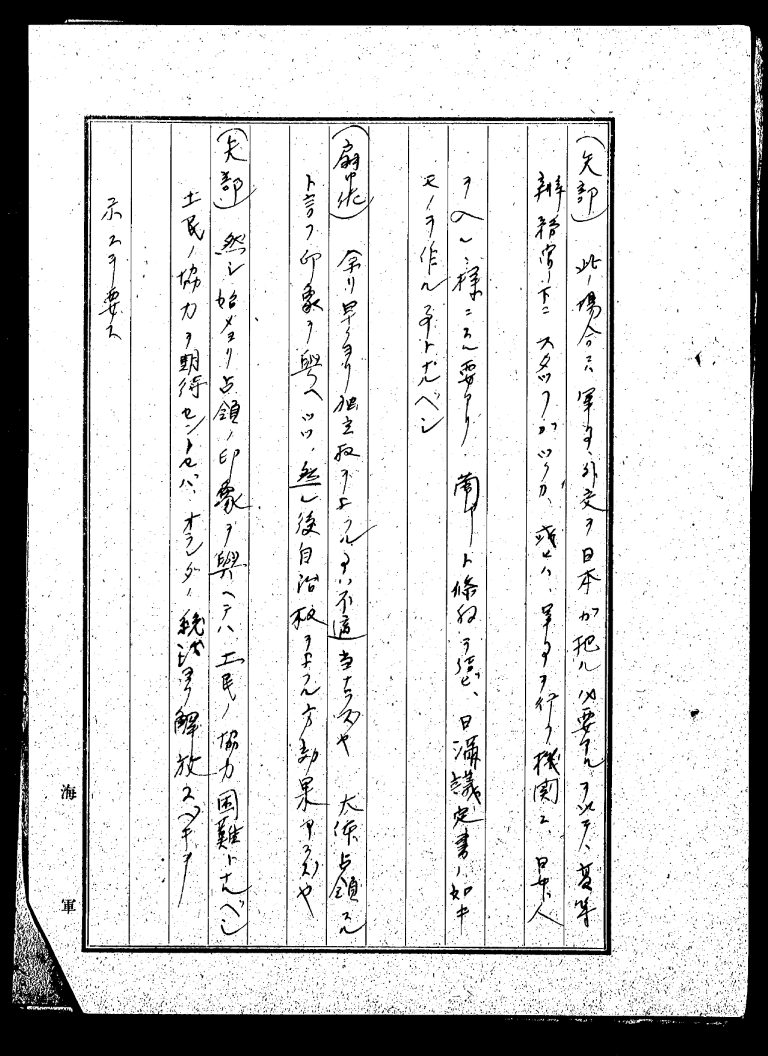 (矢部) 此ノ場合ニハ軍事、外交ヲ日本ガ把ル必要アルヲ以テ、高等
辨務官ノ下ニスタッフガツクカ、或ヒハ軍事ヲ行フ機関ニ、日本人
ヲヘル様ニスル要アリ、蘭印ト條約ヲ結ビ、日満議定書ノ如キ
モノヲ作ル事トナルベシ
(扇) 余リ早クヨリ独立政ヲ ハ不適当ナラズヤ 大体占領スル
ト言フ印象ヲ與ヘツツ、然ル後自治权ヲ 方効果アラズヤ
(矢部) 然シ始メヨリ占領ノ印象ヲ與ヘテハ土民ノ協力困難トナルベシ
土民ノ協力ヲ期待セントセバ、オランダノ統治ヨリ解放スベキヲ
示スヲ要ス
海軍